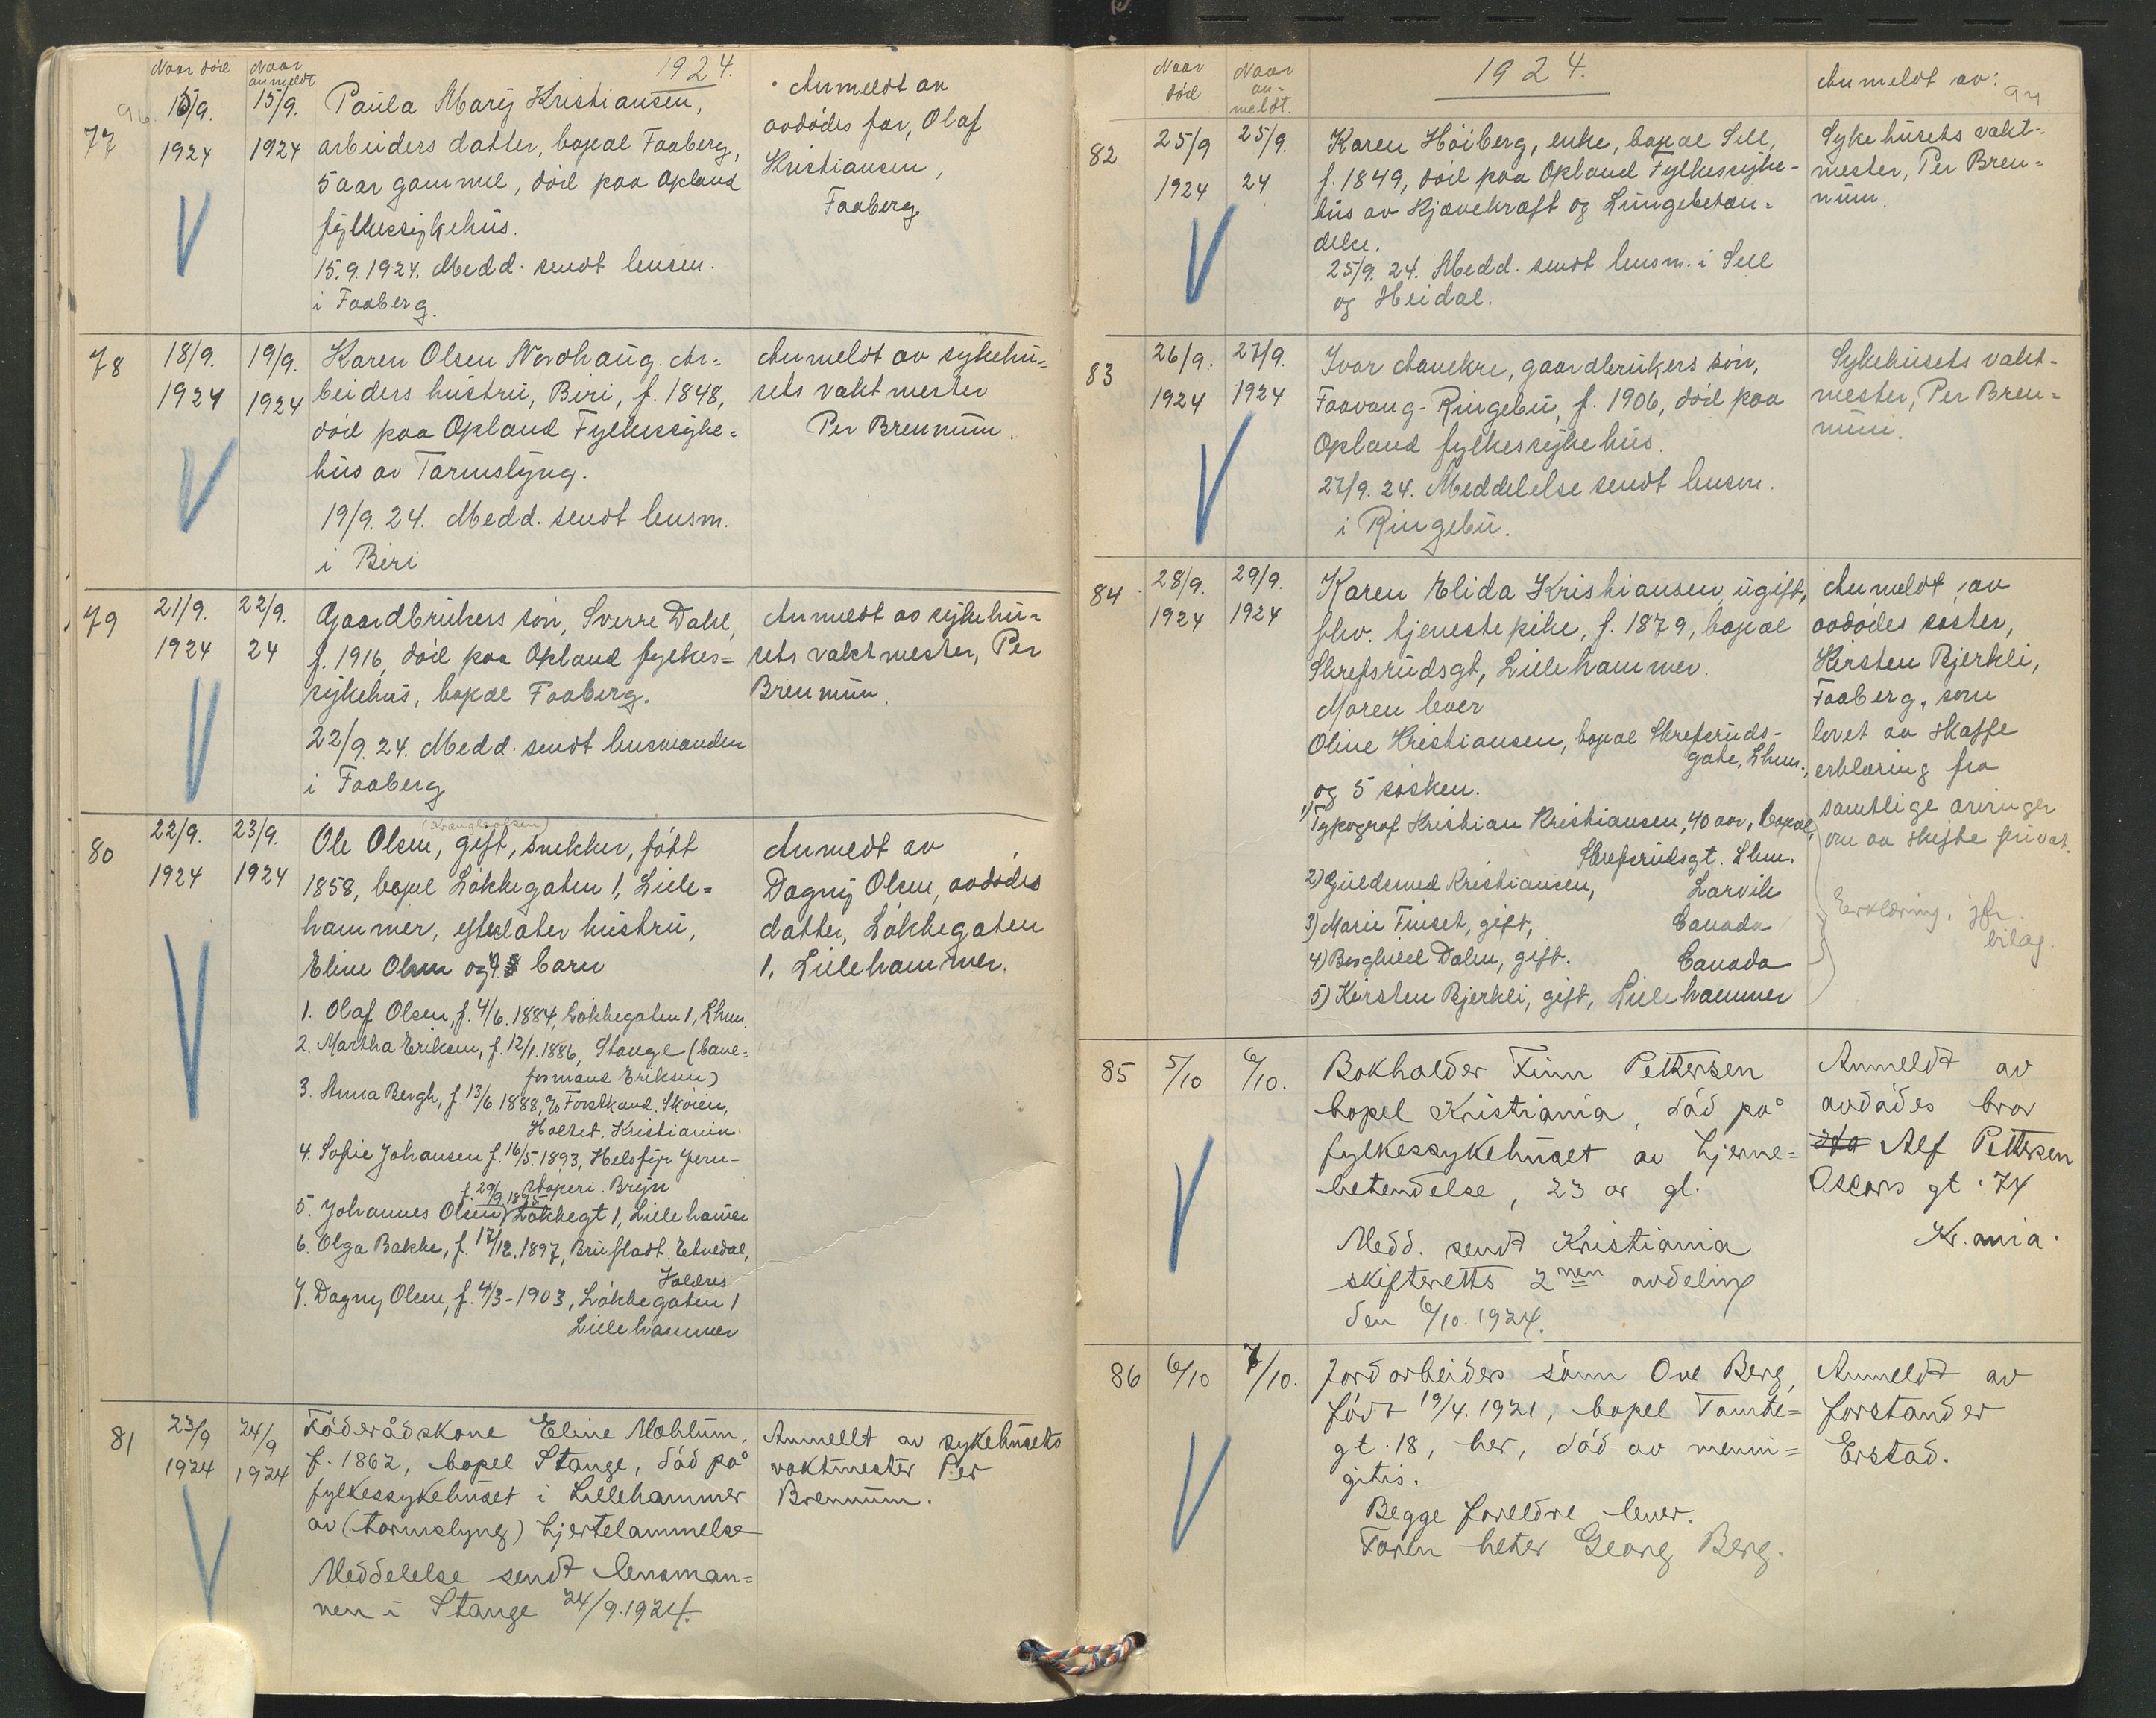 Naar död
Naar anmeldt
1924.
96
77
15/9.
1924
15/9.
1924
Paula Mary Kristiansen,
arbeiders datter, bopæl Faaberg,
5 aar gammel, död paa Opland
fylkessykehus.
15.9.1924. Medd. sendt lensm.
i Faaberg.
Anmeldt av
avdødes far, Olaf
Kristiansen,
Faaberg
78
18/9.
1924
19/9.
1924
Karen Olsen Nordhaug. Ar=
beiders hustru, Biri, f. 1848,
död paa Opland Fylkessyke=
hus av Tarmslyng.
19/9. 24. Medd. sendt lensm.
i Biri
Anmeldt av sykehu=
sets vaktmester
Per Brennum.
79
21/9.
1924
22/9.
24
Gaardbrukers sön, Sverre Dahl,
f. 1916, död paa Opland fylkes=
sykehus, bopæl Faaberg.
22/9. 24. Medd. sendt lensmanden
i Faaberg
Anmeldt av sykehu=
sets vaktmester, Per
Brennum.
80
22/9.
1924
23/9.
1924
Ole Olsen, gift, snekker, født
1858, bopæl Løkkegaten 1, Lille=
hammer, efterlater hustru,
Eline Olsen og 7 barn
1. Olaf Olsen, f. 4/6. 1884, Løkkegaten 1, Lhm.
2. Martha Eriksen, f. 12/1. 1886, Stange (bane=
formand Eriksen)
3. Anna Bergh, f. 13/6. 1888, c/o Forstkand. Skøien,
Holtet, Kristiania.
4. Sofie Johansen f. 16/5. 1893, Helsfyr Jern-
støperi. Bryn
f. 29/9 1895
5. Johannes Olsen, Løkkegt 1, Lillehamer
6. Olga Bakke, f. 17/12. 1897, Brufladt. Etnedal,
Valdres
7. Dagny Olsen, f. 4/3-1903, Løkkegaten 1
Lillehammer
Anmeldt av
Dagny Olsen, avdødes
datter, Løkkegaten
1, Lillehammer.
81
23/9
1924
24/9
1924
Föderådskone Eline Mæhlum,
f. 1862, bopel Stange, död på
fylkessykehuset i Lillehammer
av (tarmslyng) hjertelammelse
Meddelelse sendt lensman=
nen i Stange 24/9.1924.
Anmeldt av sykehusets
vaktmester Per
Brennum.
Naar död
Naar an=
meldt.
1924.
Anmeldt av:
97.
82
25/9
1924
25/9.
24
Karen Höiberg, enke, bopæl Sell,
f. 1849, död paa Opland Fylkessyke-
hus av Kjævekræft og Lungebetæn=
delse.
25/9. 24. Medd. sendt lensm. i Sell
og Heidal.
Sykehusets vakt=
mester, Per Bren=
num.
83
26/9.
1924
27/9.
1924
Ivar Aanekre, gaardbrukers sön,
Faavang-Ringebu, f. 1906, död paa
Opland fylkessykehus.
27/9. 24. Meddelelse sendt lensm.
i Ringebu.
Sykehusets vakt-
mester, Per Bren=
num.
84
28/9.
1924
29/9.
1924
Karen Elida Kristiansen, ugift,
fhv. tjenestepike, f. 1879, bopæl
Skrefsrudsgt, Lillehammer.
Moren lever
Oline Kristiansen, bopæl Skrefsruds-
gate, Lhm.,
og 5 søsken.
1) Typograf Kristian Kristiansen, 40 aar, bopæl,
Skrefsrudsgt. Lhm.
2) Guldsmed Kristiansen, Larvik
3) Marie Finset, gift, Canada
4) Borghild Dalen, gift. Canada
5) Kirsten Bjerkli, gift, Lillehammer
Anmeldt av
avdødes søster,
Kirsten Bjerkli,
Faaberg, som
lovet aa skaffe
erklæring fra
samtlige arvinger
om aa skifte privat.
Erklæring, jfr.
bilag.
85
5/10
6/10.
Bokholder Finn Pettersen
bopel Kristiania, död på
fylkessykehuset av hjerne=
betendelse, 23 år gl.
Medd. sendt Kristiania
skifteretts 2nen avdeling
den 6/10. 1924.
Anmeldt av
avdödes bror
Alf Pettersen
Oscars gt. 74
Kr.ania.
86
6/10
7/10.
Jordarbeiders sönn Ove Berg,
födt 19/4. 1921, bopel Tomte=
gt. 18, her, död av menin=
gitis.
Begge foreldre lever.
Faren heter Georg Berg.
Anmeldt av
forstander
Erstad.